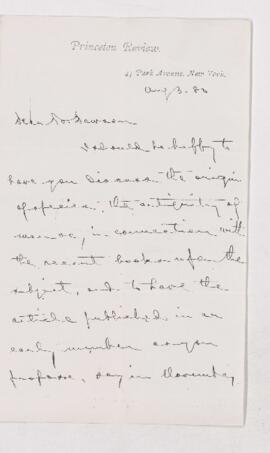 Princeton Review.
41 Park Avenue, New York.
Aug 3. 80
Dear Dr. Dawson
I should be happy to
have you discuss the origin
of species, the antiquity of
man &c, in connection with
the recent books upon the
subject, and to have the
article published in an
early number as you
propose, say in November